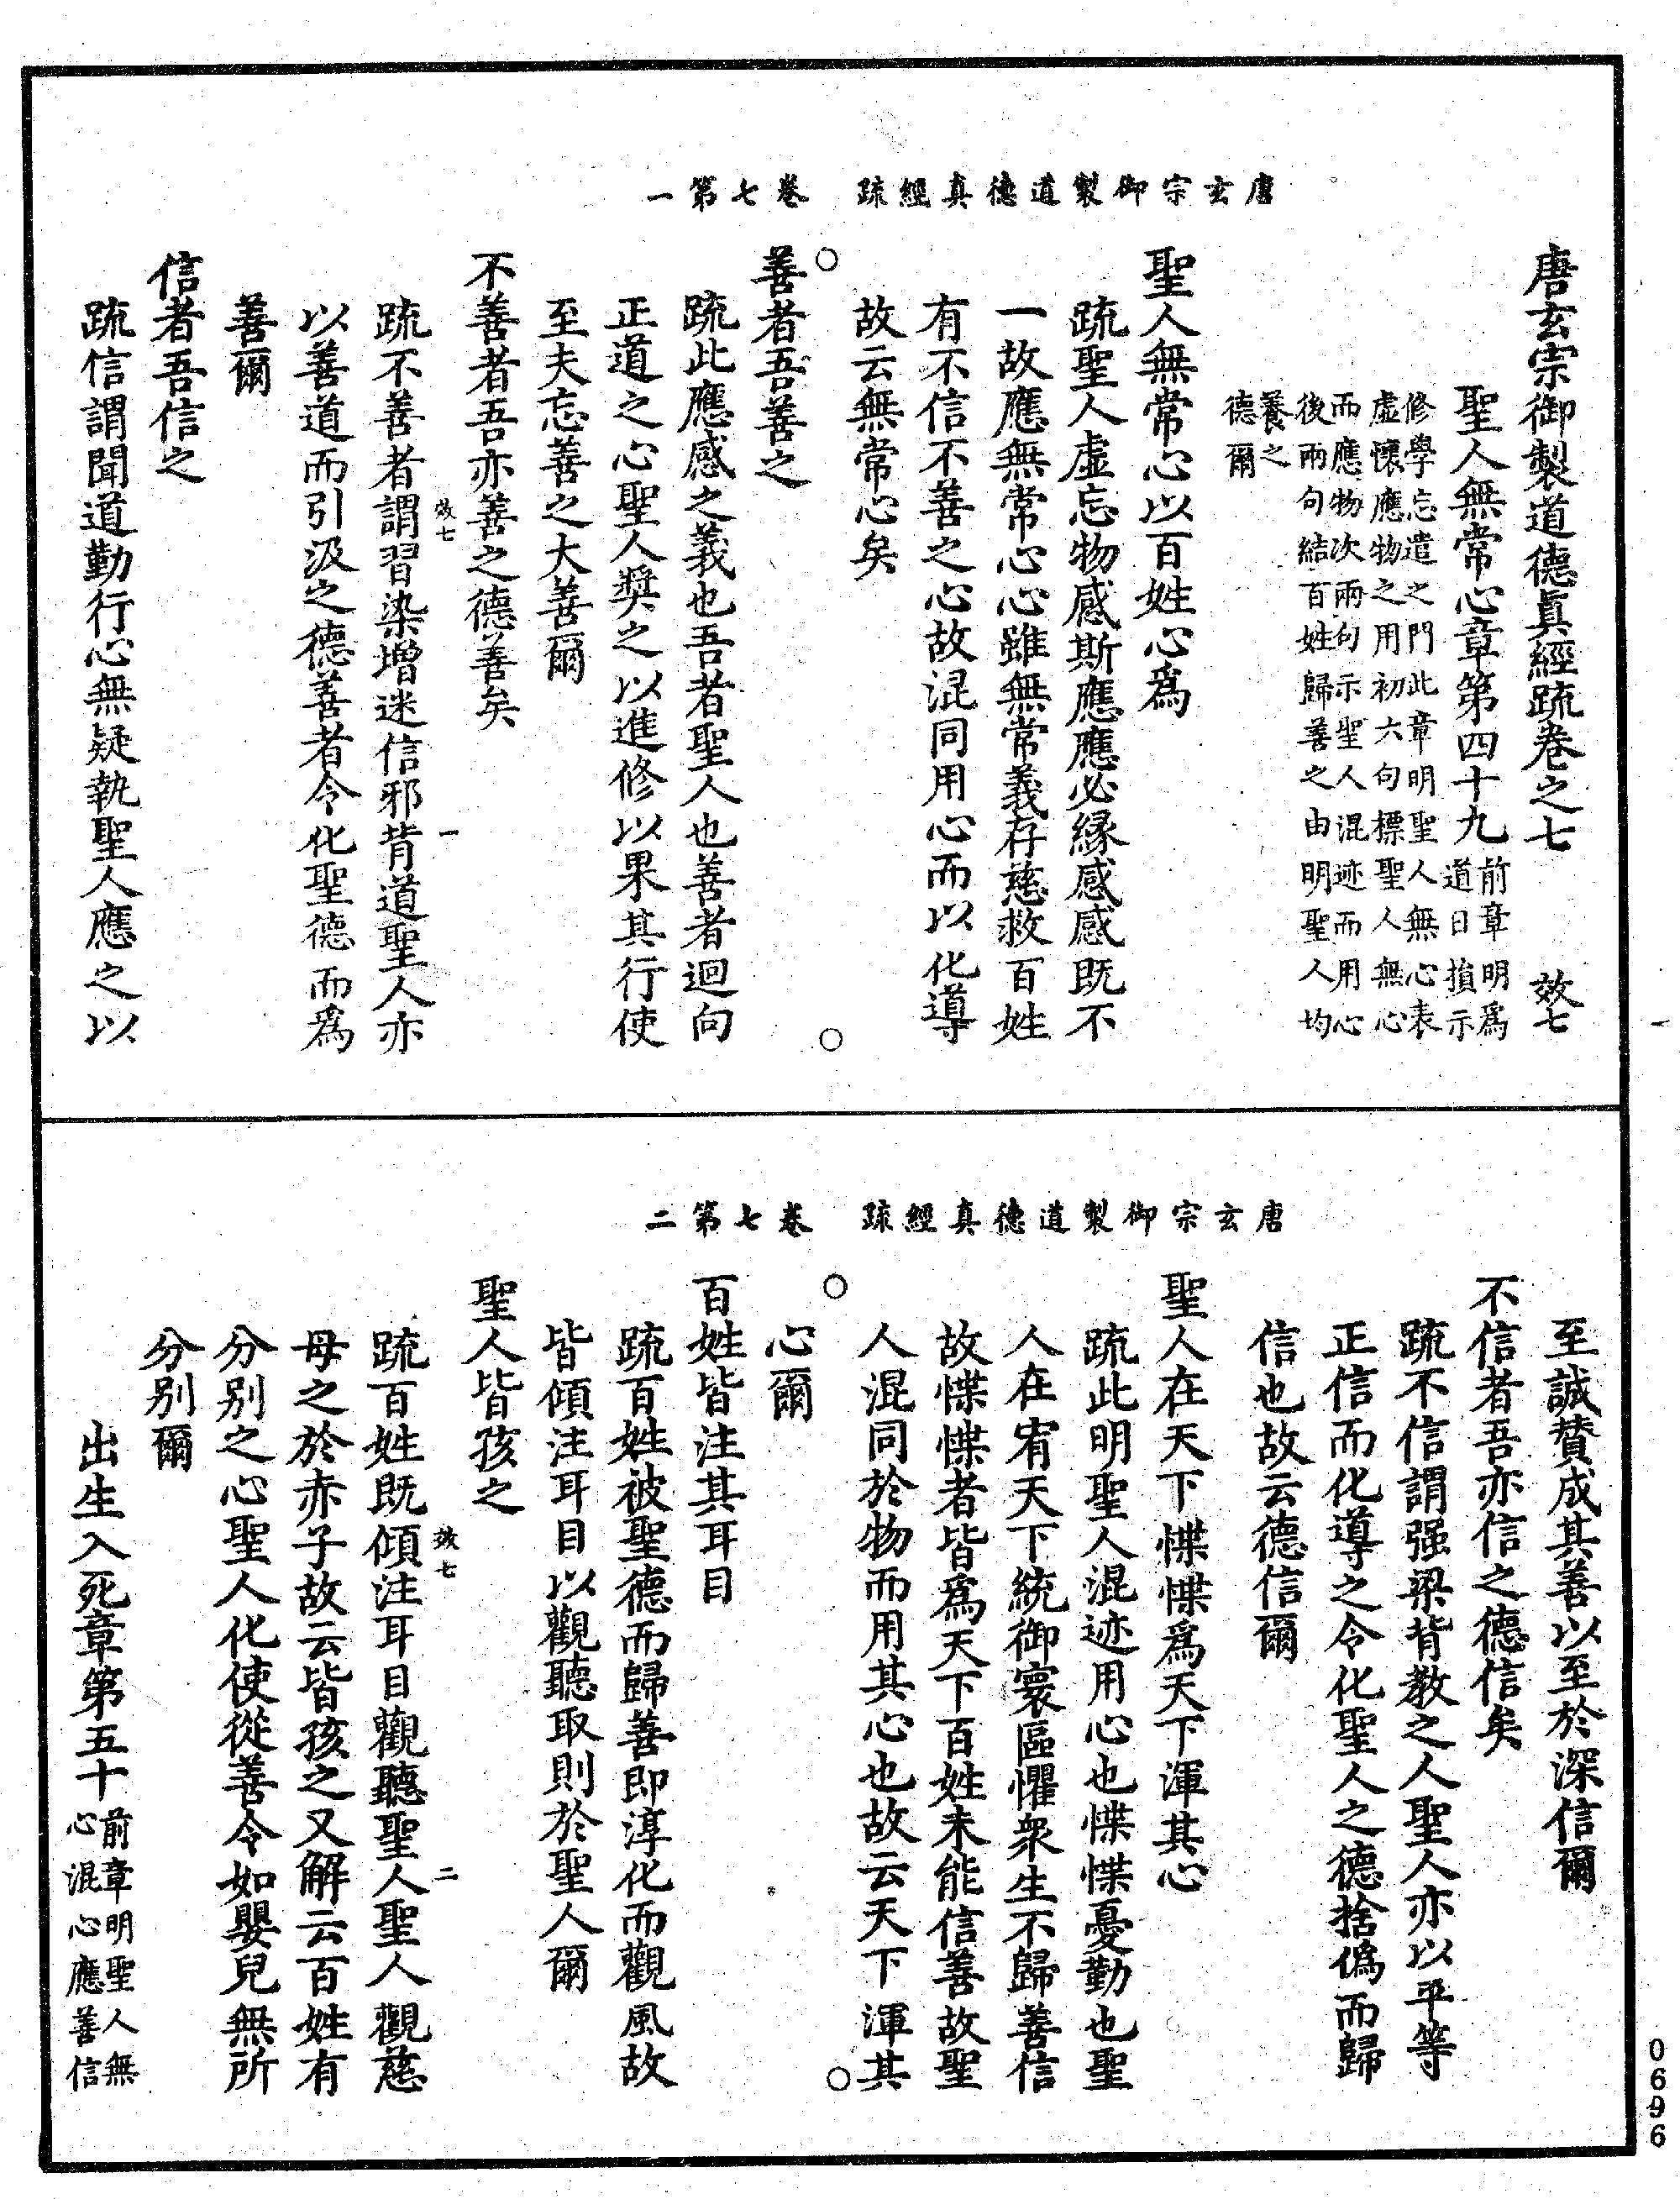 唐玄宗御製道德真經疏　卷七第一
唐玄宗御製道德眞經疏卷之七　效七
聖人無常心章第四十九前章明爲
道日損示
修學忘遣之門此章明聖人無心表
虛懷應物之用初六句標聖人無心
而應物次兩句示聖人混迹而用心
後兩句結百姓歸善之由明聖人均
養之
德爾
聖人無常心以百姓心爲
疏聖人虛忘物感斯應應必緣感感既不
一故應無常心心雖無常義存慈救百姓
有不信不善之心故混同用心而以化導
故云無常心矣
善者吾善之
疏此應感之義也吾者聖人也善者迴向
正道之心聖人奬之以進修以果其行使
至夫忘善之大善爾
不善者吾亦善之德善矣
效七　一
疏不善者謂習染增迷信邪背道聖人亦
以善道而引汲之德善者令化聖德而爲
善爾
信者吾信之
疏信謂聞道勤行心無疑執聖人應之以
唐玄宗御製道德真經疏　卷七第二
至誠贊成其善以至於深信爾
不信者吾亦信之德信矣
疏不信謂强梁背教之人聖人亦以平等
正信而化導之令化聖人之德捨僞而歸
信也故云德信爾
聖人在天下惵惵爲天下渾其心
疏此明聖人混迹用心也惵惵憂勤也聖
人在宥天下統御寰區懼衆生不歸善信
故惵惵者皆爲天下百姓未能信善故聖
人混同於物而用其心也故云天下渾其
心爾
百姓皆注其耳目
疏百姓被聖德而歸善即淳化而觀風故
皆傾注耳目以觀聽取則於聖人爾
聖人皆孩之
效七　二
疏百姓既傾注耳目觀聽聖人聖人觀慈
母之於赤子故云皆孩之又解云百姓有
分别之心聖人化使從善令如嬰兒無所
分别爾
出生入死章第五十前章明聖人無
心混心應善信
0696